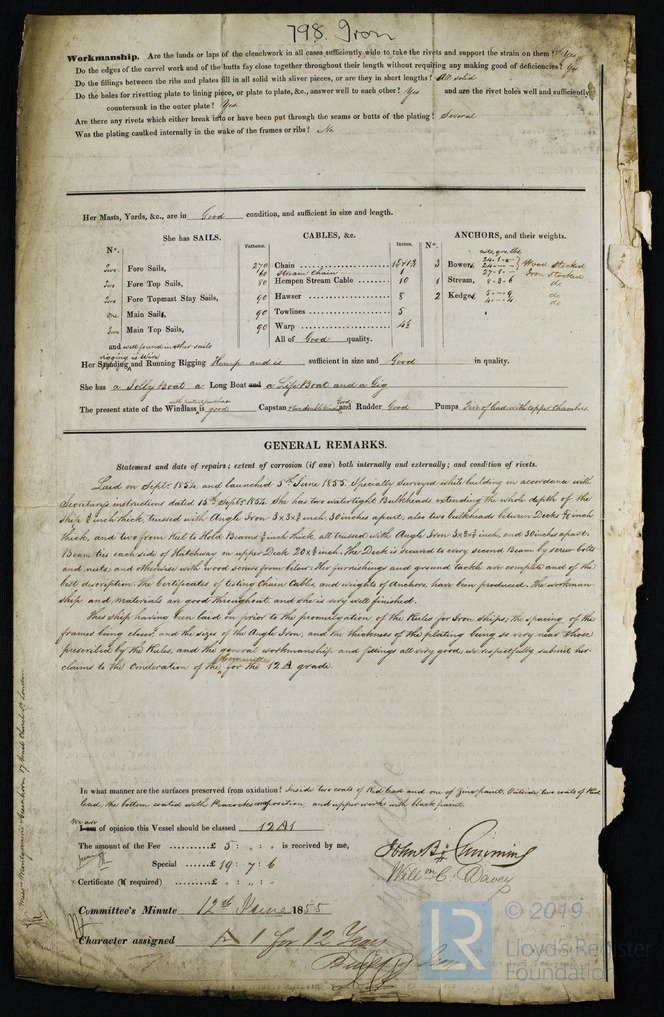 798. Iron
Workmanship. Are the lands or laps of the clenchwork in all cases sufficiently wide to take the rivets and support the strain on them? Yes
Do the edges of the carvel work and of the butts fay close together throughout their length without requiring any making good of deficiencies? Yes
Do the fillings between the ribs and plates fill in all solid with sliver pieces, or are they in short lengths? All solid
Do the holes for rivetting plate to lining piece, or plate to plate, &c., answer well to each other? Yes and are the rivet holes well and sufficiently
countersunk in the outer plate? Yes
Are there any rivets which either break into or have been put through the seams or butts of the plating? Several
Was the plating caulked internally in the wake of the frames or ribs? No
Her Masts, Yards, &c., are in Good condition, and sufficient in size and length.
She has SAILS. CABLES, &c. ANCHORS, and their weights.
N°. Fathoms. Inches. N°.
Two Fore Sails, 270 Chain 3 Bowers, Wood Stocked
60 Stream Chain 1 Iron Stocked
Two Fore Top Sails, 80 Hempen Stream Cable 10 1 Stream, 8-3-6 do
Two Fore Topmast Stay Sails, 90 Hawser 8 2 Kedges, do
One Main Sails, 90 Towlines 5 do
Two Main Top Sails, 90 Warp 4½
and well found in other sails All of Good quality.
rigging is Wire
Her Standing and Running Rigging Hemp and is sufficient in size and Good in quality.
She has a Jolly Boat a Long Boat and a Life Boat and a Gig
The present state of the Windlass is good Capstan Good and Rudder Good Pumps Five of lead with copper chambers.
GENERAL REMARKS.
Statement and date of repairs; extent of corrosion (if any) both internally and externally; and condition of rivets.
Laid on Septr. 1854, and launched 5th June 1855. Specially Surveyed while building in accordance with
Secretary's instructions dated 15th Septr. 1854. She has two watertight Bulkheads extending the whole depth of the
Ship inch thick, trussed with Angle Iron 3x3x inch, 30 inches apart, also two bulkheads between Decks inch
thick, and two from Keel to Hold Beams inch thick, all trussed with Angle Iron 3x3x inch, and 30 inches apart.
Beam ties each side of Hatchway on upper Deck 20x inch. The Deck is secured to every second Beam by screw bolts
and nuts; and otherwise with wood screws from below. Her furnishings and ground tackle are complete and of the
best discription. The Certificates of testing Chain Cables, and weights of Anchors, have been produced. The workman-
ship and materials are good throughout, and she is very well finished.
This Ship having been laid on prior to the promulgation of the Rules for Iron Ships; the spacing of the
frames being closer, and the size of the Angle Iron, and the thickness of the plating being so very near those
prescribed by the Rules, and the general workmanship and fittings all very good, we respectfully submit her
claims to the Consideration of the Committee for the 12 A grade.
In what manner are the surfaces preserved from oxidation? Inside two coats of Red lead and one of Zinc paint. Outside two coats of Red
lead, the bottom coated with Peacocks composition, and upper works with black paint.
We are
I am of opinion this Vessel should be classed 12 A1
The amount of the Fee £ 5 : : is received by me,
Special £ 19 : 7 : 6
Certificate (if required) £ : :
John B. Cumming
Willm. C. Davey
Committee's Minute 12th June 1855
Character assigned A 1 for 12 Years
© 2019
LR
Lloyd's Register
Foundation